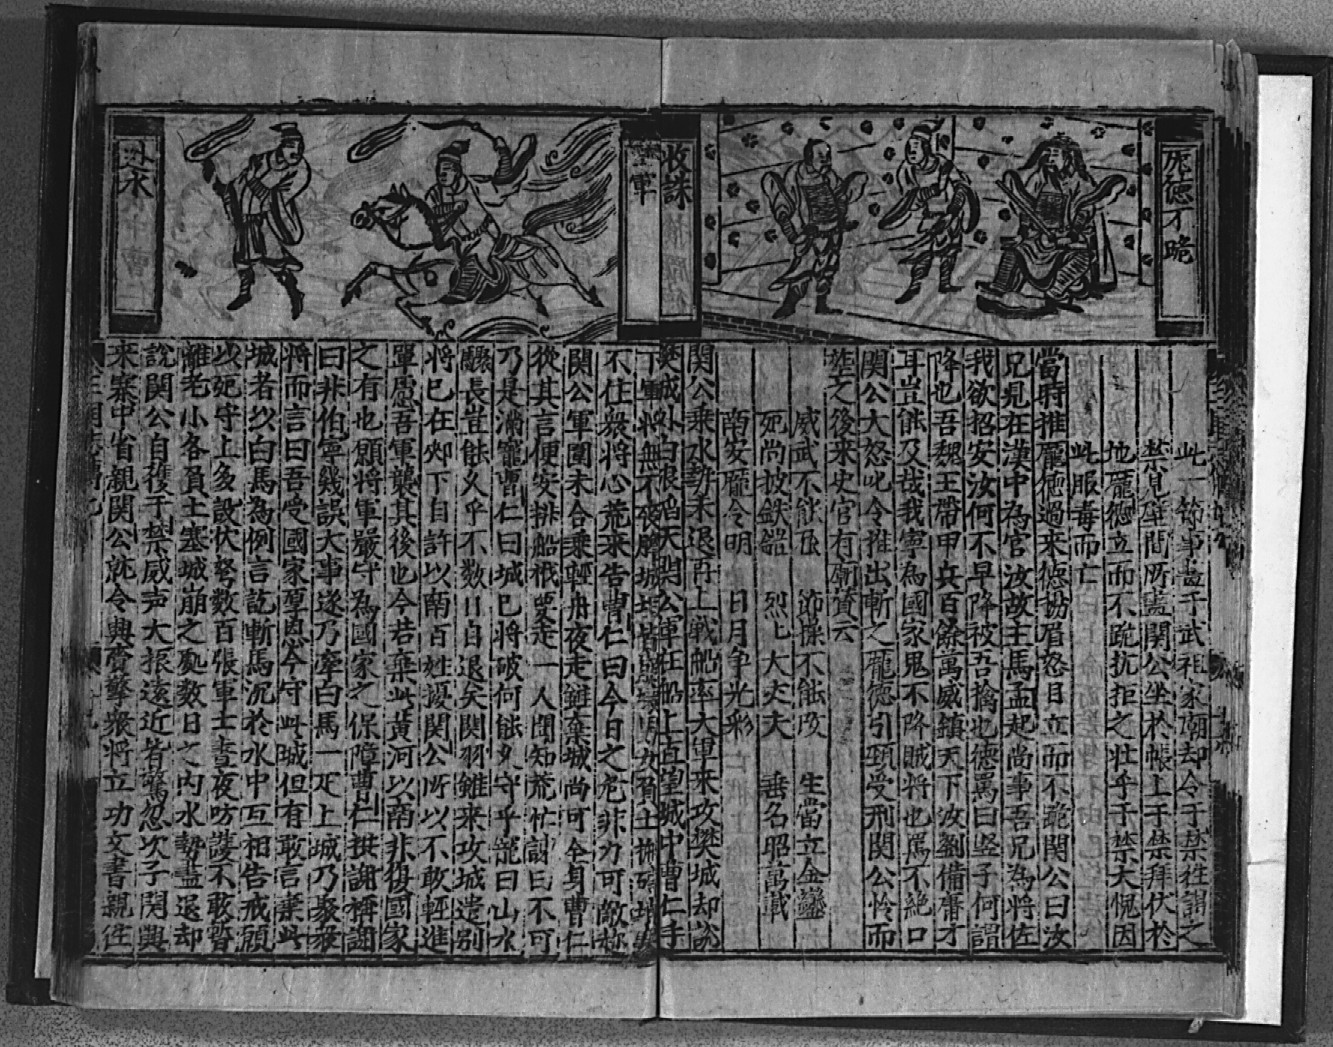 龐德不跪
此一節事盡于武祖家廟却令于禁往謁之
禁見壁間所畫関公坐於帳上于禁拜伏於
地龐德立而不跪抗拒之壯乎于禁大愧因
此服毒而亡
當時推龐德過來德扬眉怒目立而不跪関公曰汝
兄見在漢中為官汝故主馬孟起尚事吾兄為將佐
我欲招安汝何不早降被吾擒也德罵曰竪子何謂
降也吾魏王帶甲兵百餘萬威鎮天下汝劉備庸才
耳豈能及哉我寧為國家鬼不降賊將也罵不絶口
関公大怒叱令推出斬之龐德引頸受刑関公怜而
塟之後来史官有廟賛云
威武不能屈 節操不能改 生當立金鑾
死尚披鉄鎧 烈烈大丈夫 垂名昭萬載
南安龐令明 日月争光彩
関公乗水勢未退再上戦船率大軍来攻樊城却說
收誅
軍
樊城外白浪滔天関公軍在船上直望城中曹仁手
下軍將無不喪膽城垣皆崩男女負土搬磚填塞
不住衆將心荒来告曹仁曰今日之危非力可敵趂
関公軍圍未合乗輕舟夜走雖棄城尚可全身曹仁
從其言便安排船栰要走一人聞知荒忙諫曰不可
乃是滿寵曹仁曰城已將破何能久守乎寵曰山水
驟長豈能久乎不数日自退矣関羽雖来攻城遣别
將已在郟下自許以南百姓擾関公所以不敢輕進
單慮吾軍襲其後也今若棄此黄河以南非復國家
之有也願將軍嚴守為國家之保障曹仁拱謝稱謝
曰非伯寧幾誤大事遂乃牽白馬一疋上城乃聚衆
將而言曰吾受國家厚恩今守此城但有敢言棄此
城者以白馬為例言訖斬馬沉於水中互相告戒願
以死守上多設伏弩数百張軍士晝夜防護不敢暫
離老小各負土塞城崩之處数日之内水勢盡退却
說関公自獲于禁威声大振遠近皆驚忽次子関興
来寨中省親関公就令興賫擎衆將立功文書親往
水